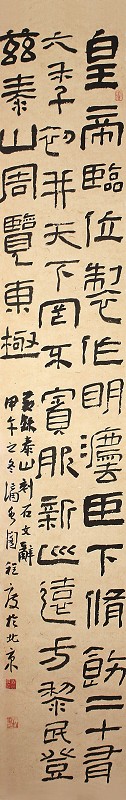 皇帝臨位製作明灋臣下脩飭二十有
六年初并天下罔不賓服新巡遠方黎民登
茲泰山周覽東極
節錄泰山刻石文辭
甲午之冬於北京